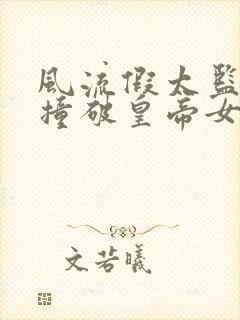 风流假太监
撞破皇帝女
文若曦